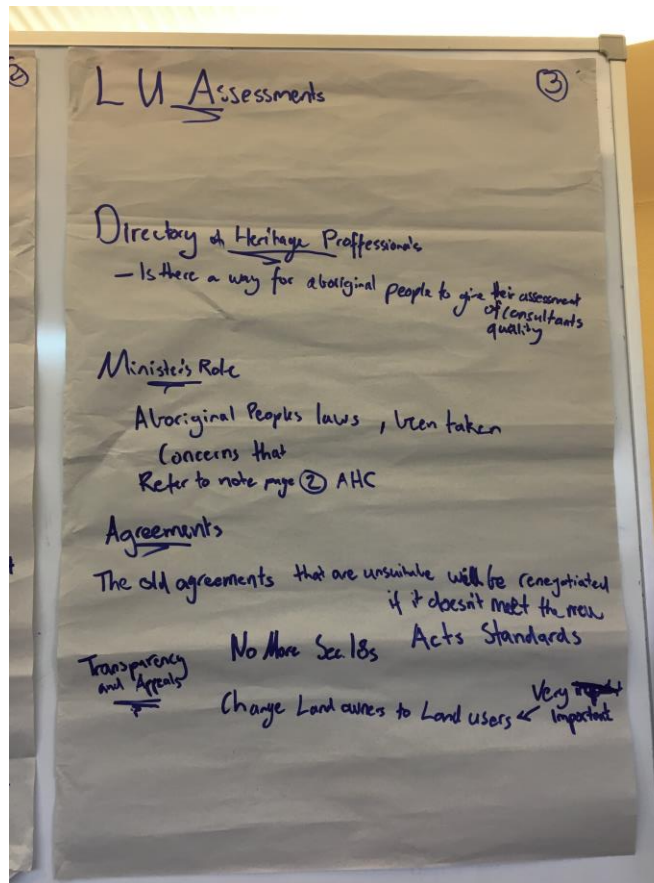 L U Assessments
③
Directory of Heritage Proffessionals
— Is there a way for aboriginal people to give their assessment
of consultants
quality
Minister's Role
Aboriginal Peoples laws , been taken
Concerns that
Refer to note page ② AHC
Agreements
The old agreements that are unsuitable will be renegotiated
if it doesn't meet the new
Acts Standards
No More Sec.18s
Transparency
and Appeals
Change Land owners to Land users ← Very
Important
②